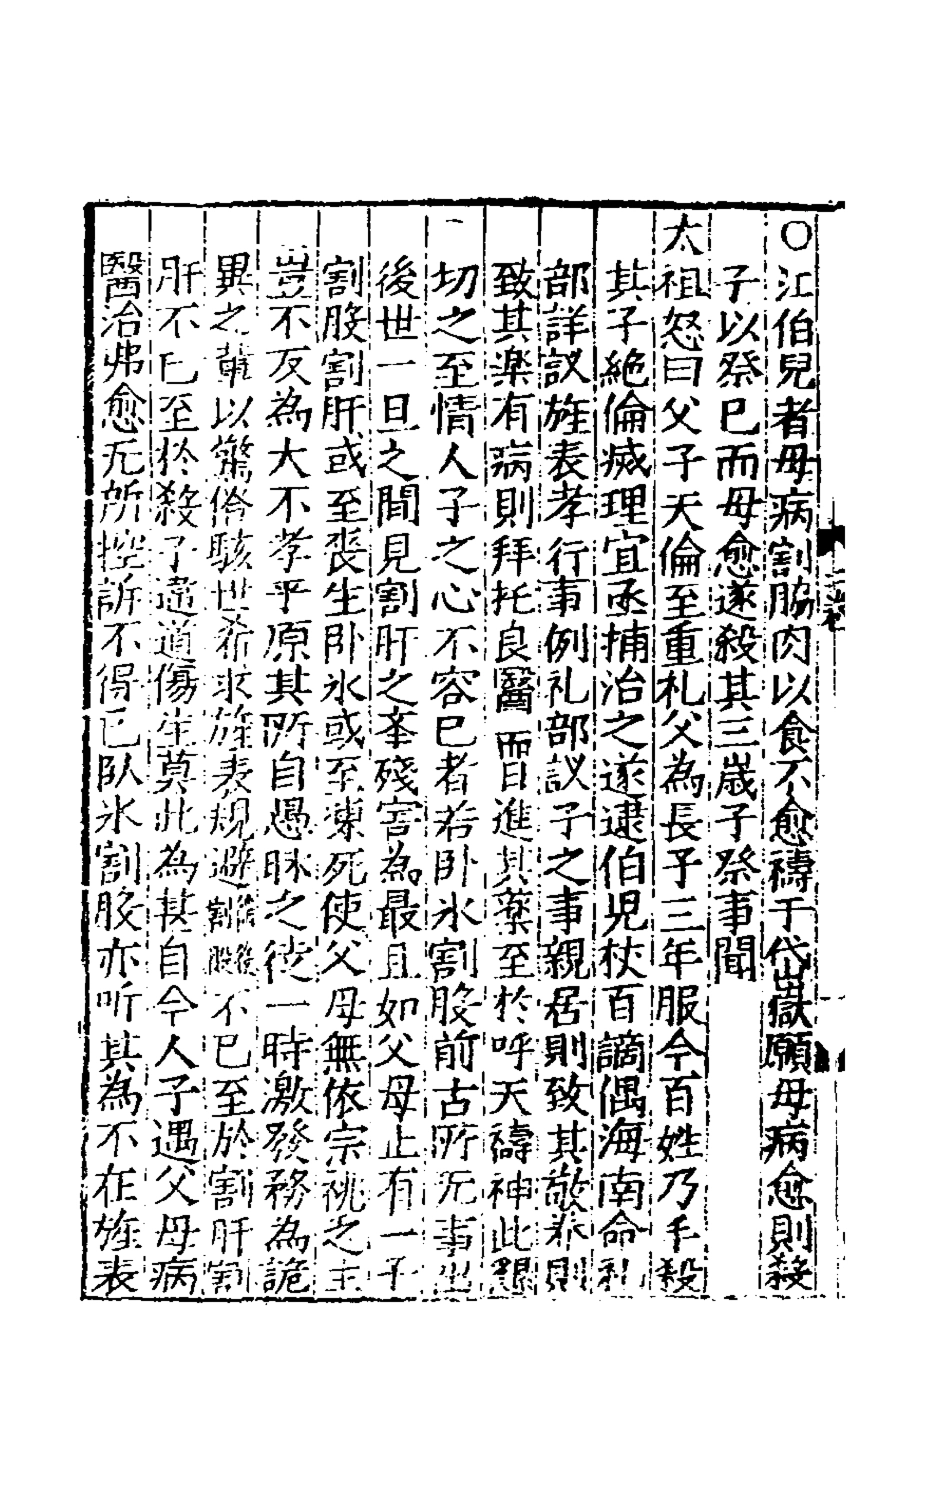 ○江伯兒者母病割脇肉以食不愈禱于岱嶽願母病愈則殺
子以祭已而母愈遂殺其三歳子祭事聞
太祖怒曰父子天倫至重礼父為長子三年服今百姓乃手殺
其子絶倫滅理宜亟捕治之遂逮伯児杖百謫倨海南命礼
部詳議旌表孝行事例礼部議子之事親居則致其敬养則
致其楽有病則拜托良醫而日進其藥至於呼天禱神此懇
切之至情人子之心不容已者若卧氷割股前古所无事出
後世一旦之間見割肝之峯殘害為最且如父母止有一子
割股割肝或至喪生卧氷或至凍死使父母無依宗祧之主
豈不反為大不孝乎原其所自愚昧之徒一時激發務為詭
異之輩以驚俗駭世希求旌表規避徭役割股不已至於割肝割
肝不已至於殺子違道傷生莫此為甚自今人子遇父母病
醫治弗愈无所控訴不得已卧氷割股亦听其為不在旌表